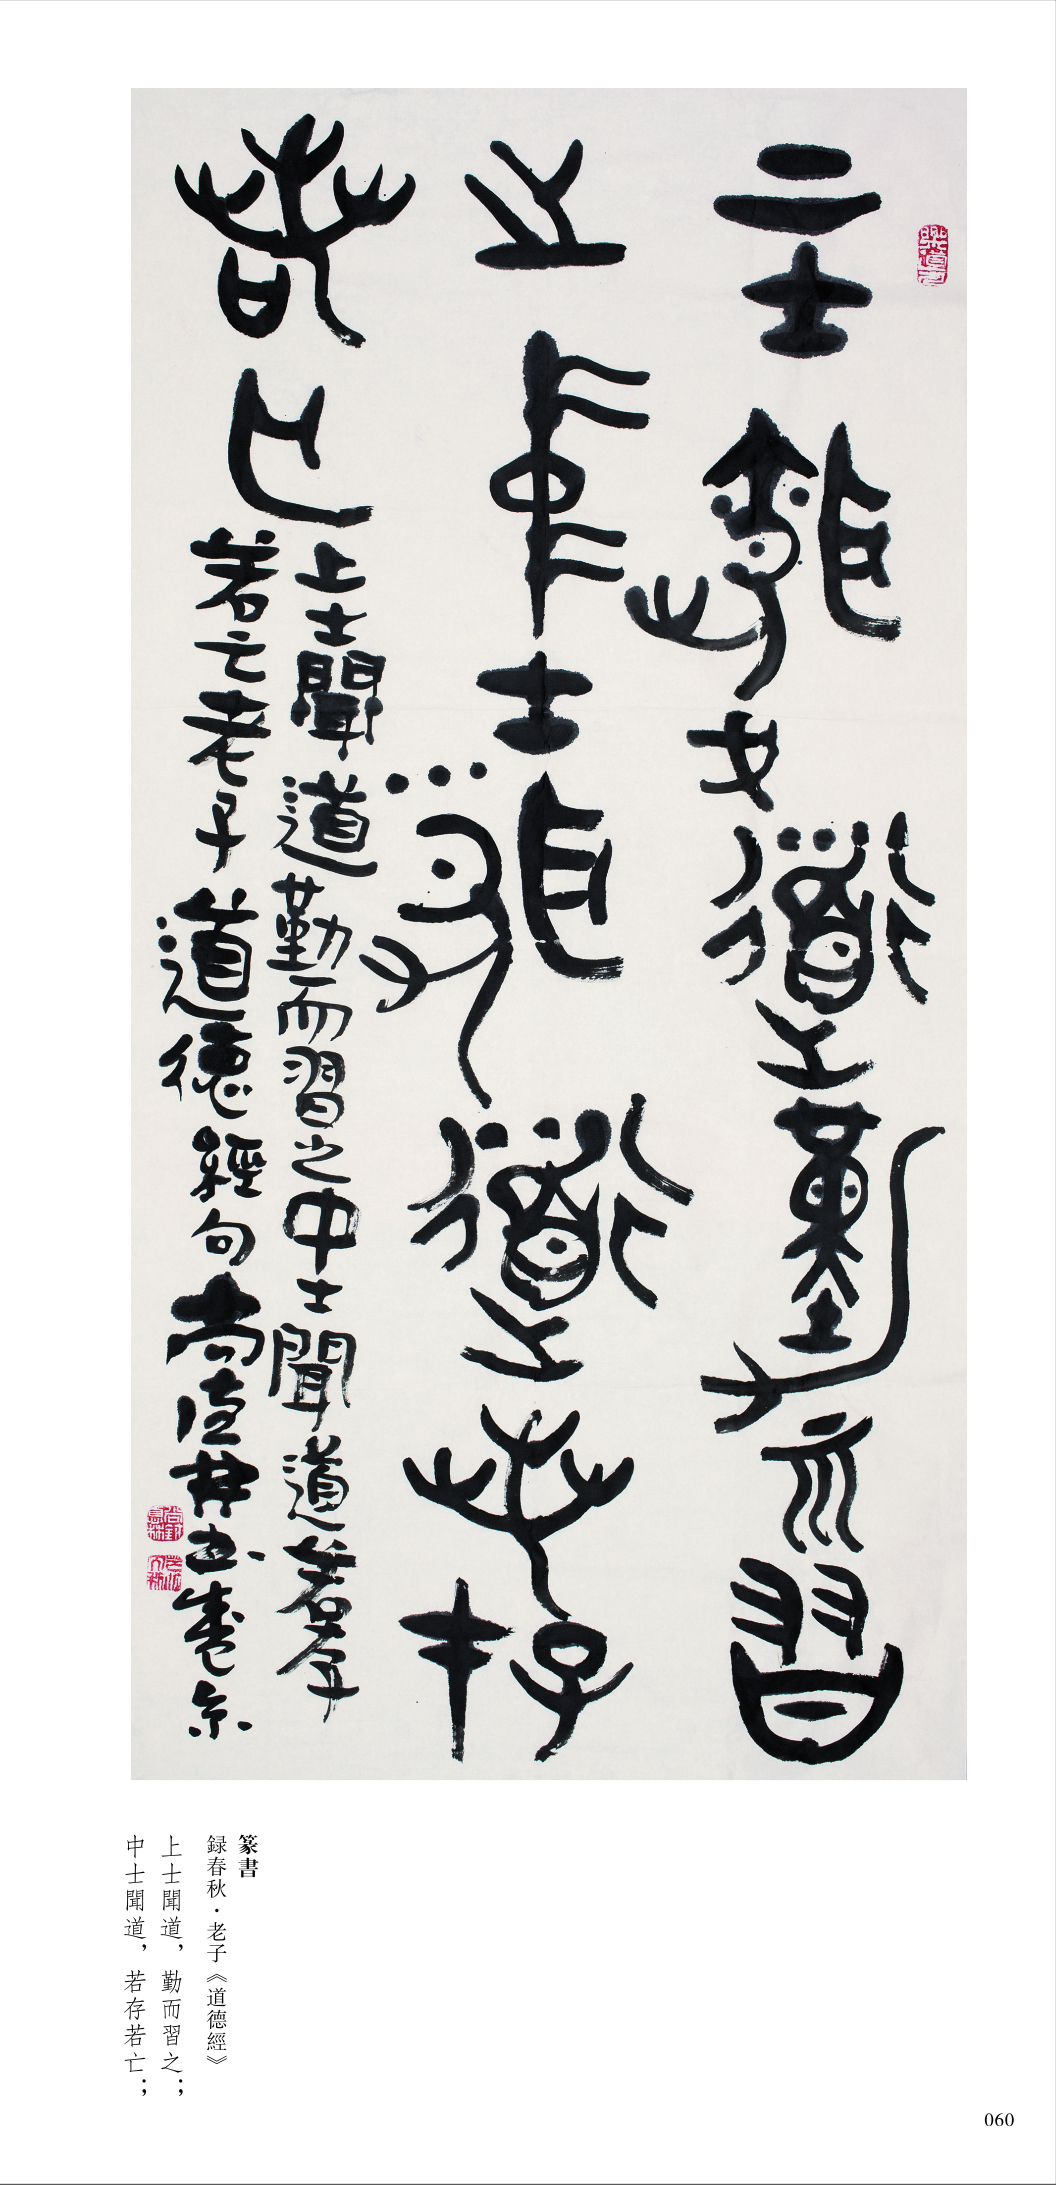 上士聞道勤而習
之中士聞道若存
若亡
上士聞道勤而習之中士聞道若存
若亡老子道德經句尚
篆書
録春秋·老子《道德經》
上士聞道，勤而習之；
中士聞道，若存若亡；
060